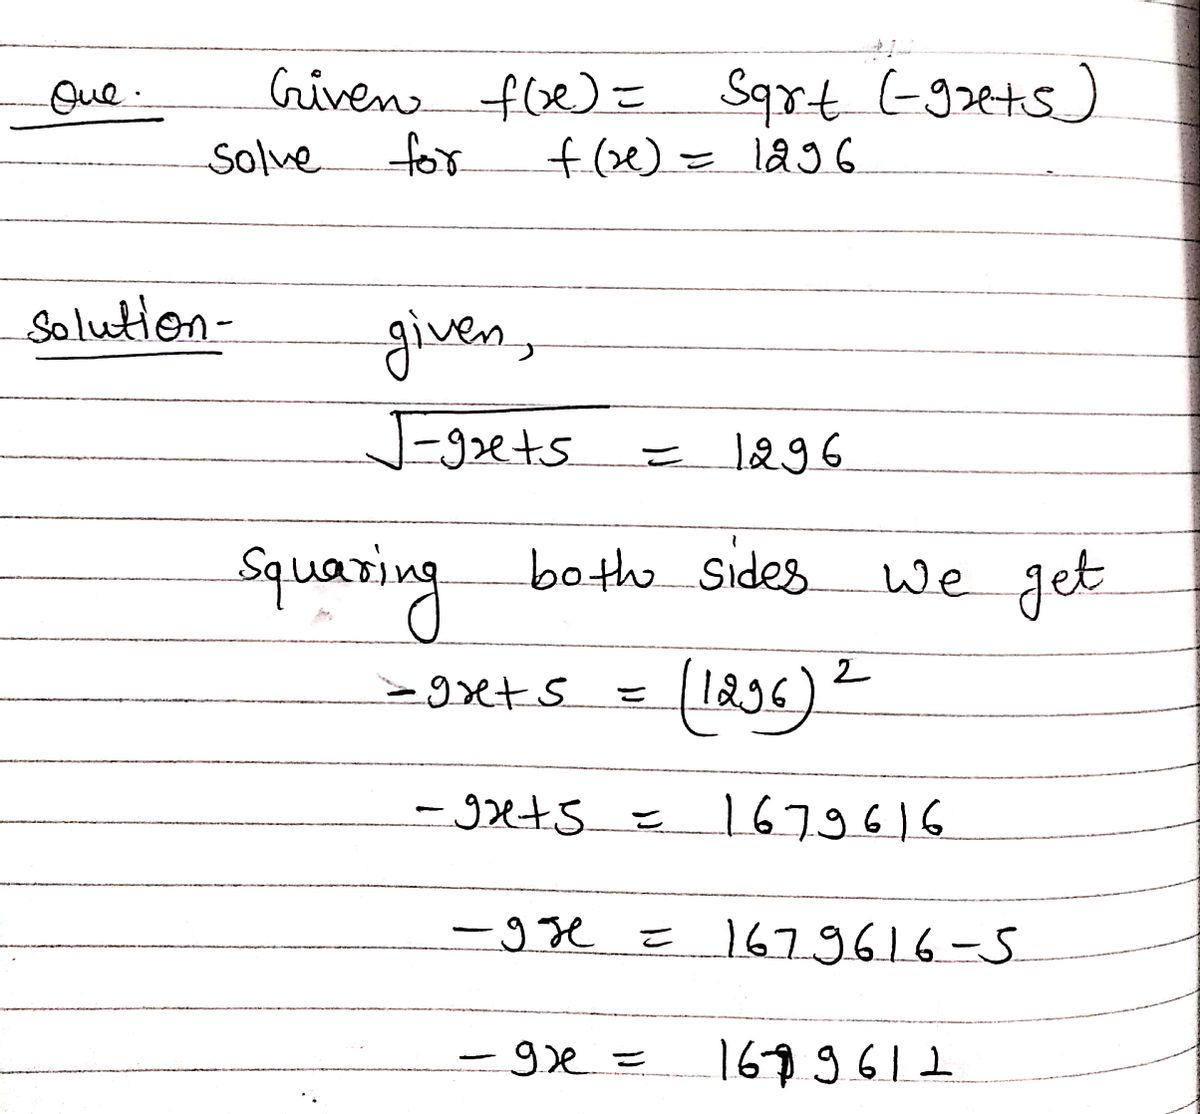 Que. Given f(x) = Sqrt (-9x+5)
solve for f(x) = 1296
Solution- given,
√-9x+5 = 1296
Squaring both sides we get
-9x+5 = (1296)²
-9x+5 = 1679616
-9x = 1679616-5
-9x = 1679611